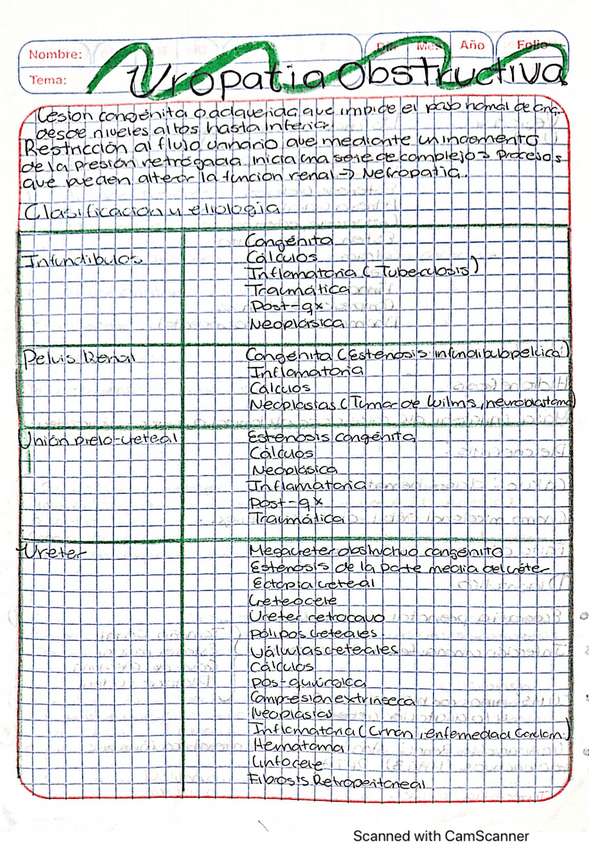 Nombre:
Día Mes Año Folio
Tema: Uropatia Obstructiva
Lesion congénita o adquerida que impide el paso normal de
desde niveles altos hasta inferia.
Restricción al flujo urinario que mediante un incremento
de la presión retrogada inicia una serie de complejo⇒ procesos
que pueden alterar la función renal → Nefropatia.
Clasificación y etiologia
Infundibulos
Congénita
Cálculos
Inflamatoria (Tuberculosis)
Traumática
Post-qx
Neoplásica
Pelvis Renal
Congénita (Estenosis infundibulopelvica)
Inflamatoria
Cálculos
Neoplasias (Tumor de Wilms, neuroblastoma)
Unión pielo-ureteal
Estenosis congénita
Cálculos
Neoplásica
Inflamatoria
Post-qx
Traumática
Ureter
Megaureter obstructivo congénito
Estenosis de la parte media del uréter
Ectopia ureteal
Ureteocele
Ureter retrocavo
Polipos ureteales
Válvulas ureteales
Cálculos
Pos-quirúrgica
Compresión extrinseca
Neoplasias
Inflamatoria (Crhon, enfemedad
Hematoma
Linfocele
Fibrosis Retroperitoneal
Scanned with CamScanner